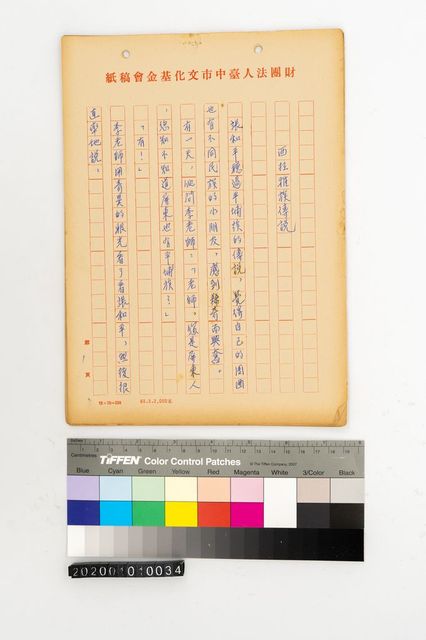 財團法人臺中市文化基金會稿紙
西拉雅族傳說
張和平聽過平埔族的傳說，覺得自己的周圍
也有不同民族的小朋友，感到稀奇而興奮。
有一天，他問李老師：「老師，您是屏東人
，您知不知道屏東也有平埔族？」
「有！」
李老師用奇異的眼光看了看張和平，然後很
連帶地說：
第 1 頁
83.3.2,000本
Centimetres
TIFFEN Color Control Patches
© The Tiffen Company, 2007
Blue Cyan Green Yellow Red Magenta White 3/Color Black
202001010034